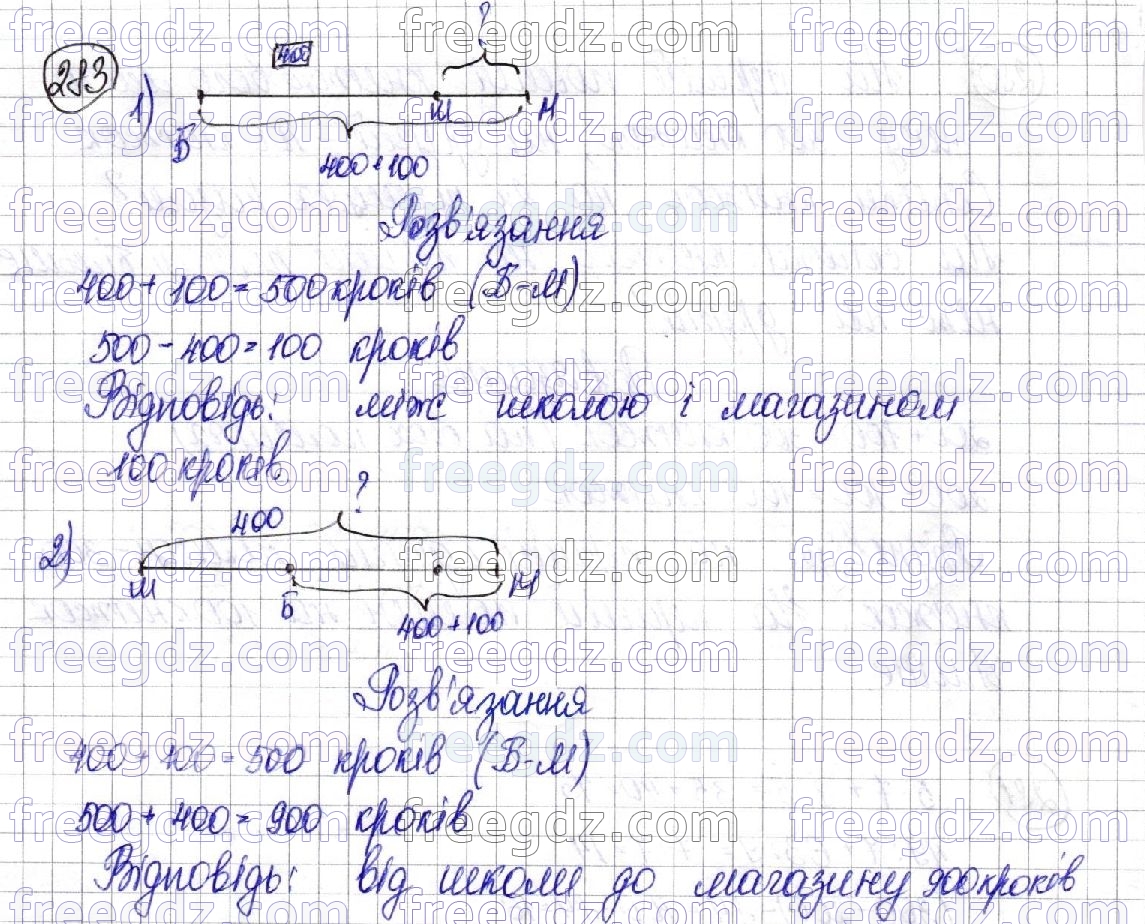 283
?
400
1)
Б Ш М
400+100
Розв'язання
400 + 100 = 500 кроків (Б-М)
500 - 400 = 100 кроків
Відповідь: між школою і магазином
100 кроків
?
400
2)
Ш Б М
400 + 100
Розв'язання
400 + 100 = 500 кроків (Б-М)
500 + 400 = 900 кроків
Відповідь: від школи до магазину 900 кроків
freegdz.com